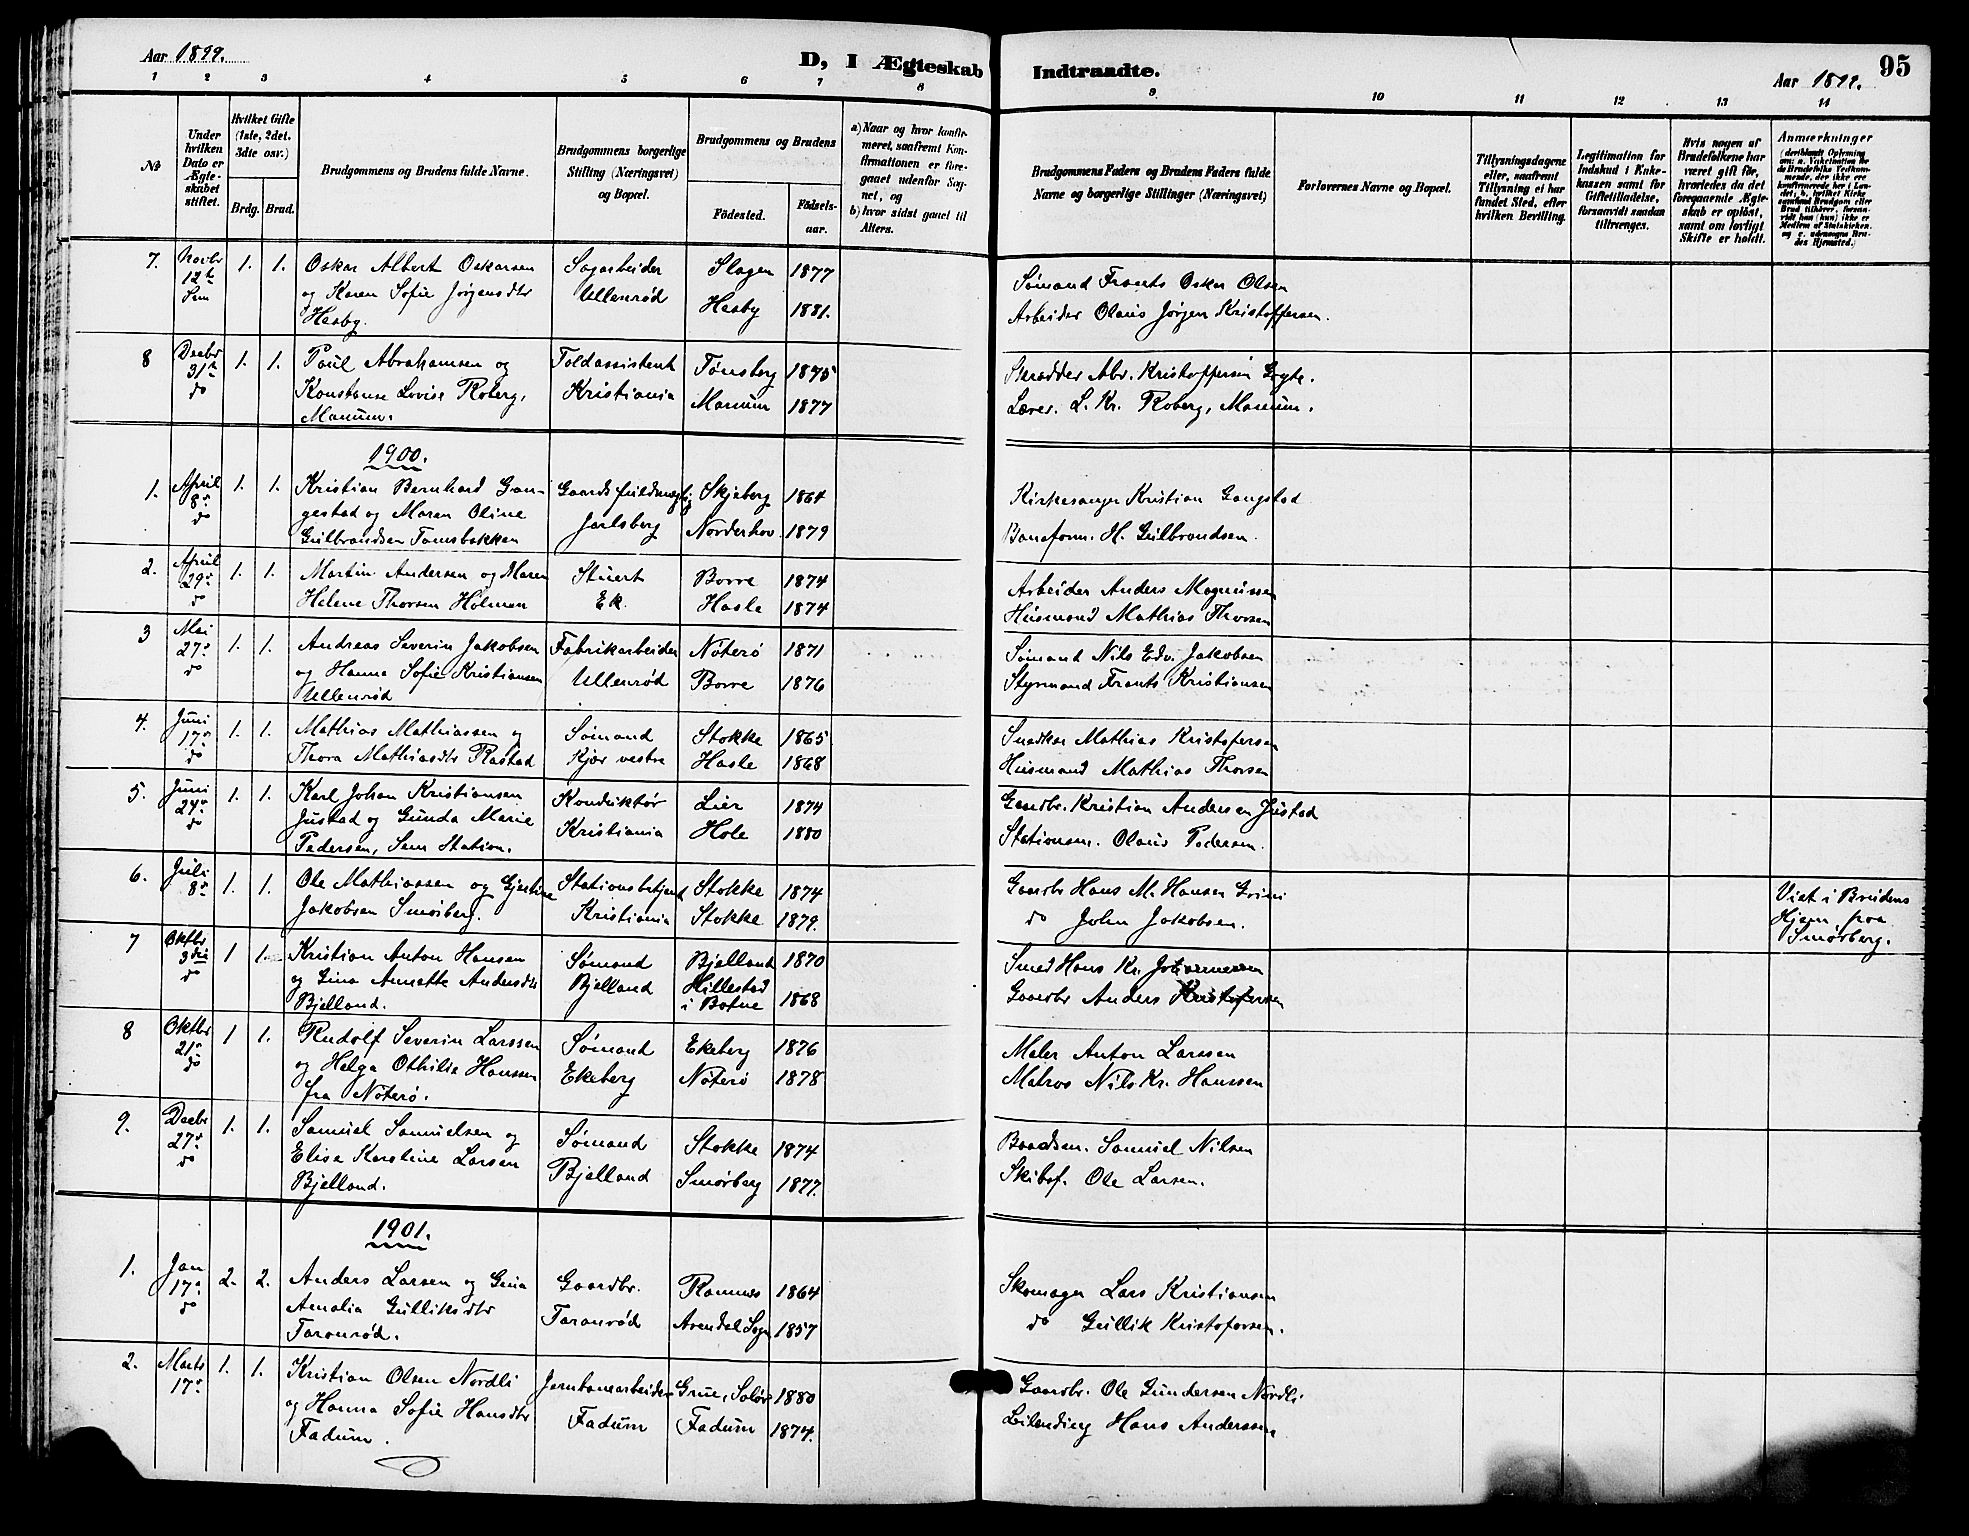 Aar 1899.
D, I Ægteskab Indtraadte.
Aar 1899.
95
1 2 3 4 5 6 7 8 9 10 11 12 13 14
№
Under hvilken Dato er Ægteskabet stiftet.
Hvilket Gifte (1ste, 2det, 3dte osv.)
Brdg. Brud.
Brudgommens og Brudens fulde Navne.
Brudgommens borgerlige Stilling (Næringsvei) og Bopæl.
Brudgommens og Brudens
Fødested.
Fødselsaar.
a) Naar og hvor konfirmeret, saafremt Konfirmationen er foregaaet udenfor Sognet, og
b) hvor sidst gaaet til Alters.
Brudgommens Faders og Brudens Faders fulde Navne og borgerlige Stillinger (Næringsvei)
Forlovernes Navne og Bopæl.
Tillysningsdagene eller, saafremt Tillysning ei har fundet Sted, efter hvilken Bevilling.
Legitimation for Indskud i Enkekassen samt for Giftetilladelse, forsaavidt saadan tiltrænges.
Hvis nogen af Brudefolkene har været gift før, hvorledes da det foregaaende Ægteskab er opløst, samt om lovligt Skifte er holdt.
Anmærkninger
7. Novbr 12te Sem 1. 1. Oskar Albert Oskarsen Sagarbeider Slagen 1877 Sømand Frants Oskar Olsen
og Karen Sofie Jørgensdtr Ullenrød Hesby 1881. Arbeider Olaus Jørgen Kristoffersen.
Hesby.
8 Decbr 31te do 1. 1. Paul Abrahamsen og Toldassistent Tønsberg 1875 Skrædder Abr. Kristoffersen
Konstanse Lovise Roberg, Kristiania Manum 1877 Lærer. L. Kr. Roberg, Manum.
Manum.
1900.
1. April 8de do 1. 1. Kristian Bernhard Gan- Gaardsfuldmægtig Skjeberg 1864 Kirkesanger Kristian Gangstad
gestad og Maren Oline Jarlsberg Norderhov 1879 Baneform. H. Gulbrandsen.
Gulbrandsen Tomsbakken
2. April 29de do 1. 1. Martin Andersen og Maren Stuert Borre 1874 Arbeider Anders Magnussen
Helene Thorsen Holmen Ek. Hasle 1874 Husmand Mathias Thorsen
3 Mai 27de do 1. 1. Andreas Severin Jakobsen Fabrikarbeider Nøterø 1871 Sømand Nils Edv. Jakobsen
og Hanna Sofie Kristiansen Ullenrød Borre 1876 Styrmand Frants Kristiansen
Ullenrød
4. Juni 17de do 1. 1. Mathias Mathiassen og Sømand Stokke 1865 Snedker Mathias Kristofersen
Thora Mathiasdtr Rastad Kjær vestre Hasle 1868 Husmand Mathias Thorsen
5. Juni 24de do 1. 1. Karl Johan Kristiansen Konduktør Lier 1874 Gaardbr. Kristian Andersen Justad
Justad og Gunda Marie Kristiania Hole 1880 Stationsm. Olaus Pedersen.
Pedersen, Sem Station.
6. Juli 8de 1. 1. Ole Mathiassen og Gjertine Stationsbetjent Stokke 1874 Gaardbr Hans M. Hansen Viet i Brudens
Jakobsen Smørberg. Kristiania Stokke 1879. do John Jakobsen. Hjem paa
Smørberg.
7 Oktbr 3die do 1 1. Kristian Anton Hansen Sømand Bjelland 1870 Smed Hans Kr. Johannessen
og Gina Annette Andersdtr Bjelland Hillestad i Botne 1868 Gaardbr Anders Kristofersen
Bjelland.
8 Oktbr 21de do 1 1. Rudolf Severin Larssen Sømand Ekeberg 1876 Maler Anton Larssen
og Helga Othilie Hanssen Ekeberg Nøterø 1878 Matros Nils Kr. Hanssen
fra Nøterø.
9. Decbr 27de do 1. 1. Samuel Samuelsen og Sømand Stokke 1874 Baadsm. Samuel Nilsen
Elise Karstine Larsen Bjelland Smørberg 1877. Skibsf. Ole Larsen.
Bjelland.
1901.
1. Jan 17de do 2. 2. Anders Larsen og Gina Gaardbr. Ramnes 1864 Skomager Lars Kristiansen
Amalia Gulliksdtr Taranrød Arendal Sogn 1857 do Gullik Kristofersen.
Taranrød.
2. Marts 17de 1. 1. Kristian Olsen Nordli Jernbanearbeider Grue, Solør 1880 Gaardbr. Ole Gundersen Nordli
og Hanna Sofie Hansdtr Fadum Fadum 1874. Leilending Hans Anderssen
Fadum.